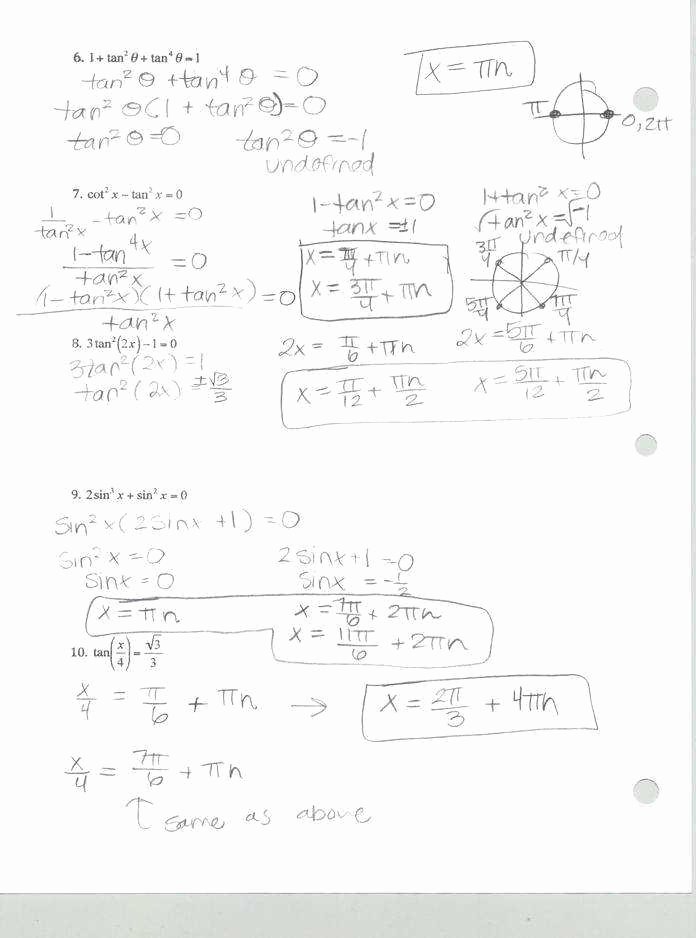 6. 1 + tan² θ + tan⁴ θ = 1
tan² θ + tan⁴ θ = 0
tan² θ (1 + tan² θ) = 0
tan² θ = 0   tan² θ = -1
undefined
x = πn
π   0, 2π
7. cot² x - tan² x = 0
1/tan²x - tan² x = 0
(1 - tan⁴x)/tan²x = 0
(1 - tan²x)(1 + tan²x)/tan²x = 0
1 - tan²x = 0
tanx = ±1
x = π/4 + πn
x = 3π/4 + πn
1 + tan² x = 0
√tan²x = √-1
undefined
3π/4   π/4
5π/4   7π/4
8. 3 tan²(2x) - 1 = 0
3tan²(2x) = 1
tan²(2x) = ±√3/3
2x = π/6 + πn   2x = 5π/6 + πn
x = π/12 + πn/2   x = 5π/12 + πn/2
9. 2 sin³ x + sin² x = 0
sin² x (2 sinx + 1) = 0
sin² x = 0   2 sinx + 1 = 0
sinx = 0   sinx = -1/2
x = πn   x = 7π/6 + 2πn
x = 11π/6 + 2πn
10. tan(x/4) = √3/3
x/4 = π/6 + πn → x = 2π/3 + 4πn
x/4 = 7π/6 + πn
↑ same as above